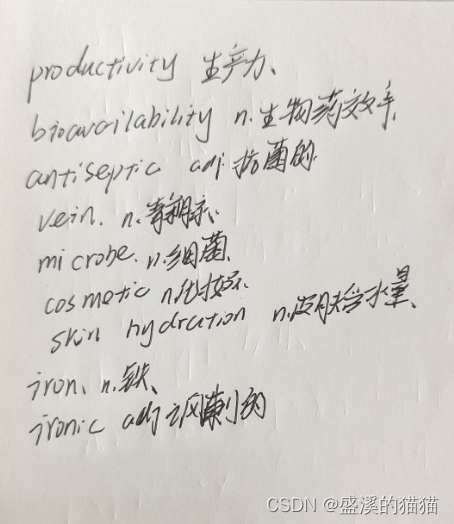 productivity 生产力、
bioavailability n.生物药效率
antiseptic adj.抗菌的
vein. n.
microbe. n.细菌
cosmetic n.化妆品
skin hydration n.皮肤含水量、
iron. n.铁、
ironic adj 讽刺的
CSDN @盛溪的猫猫